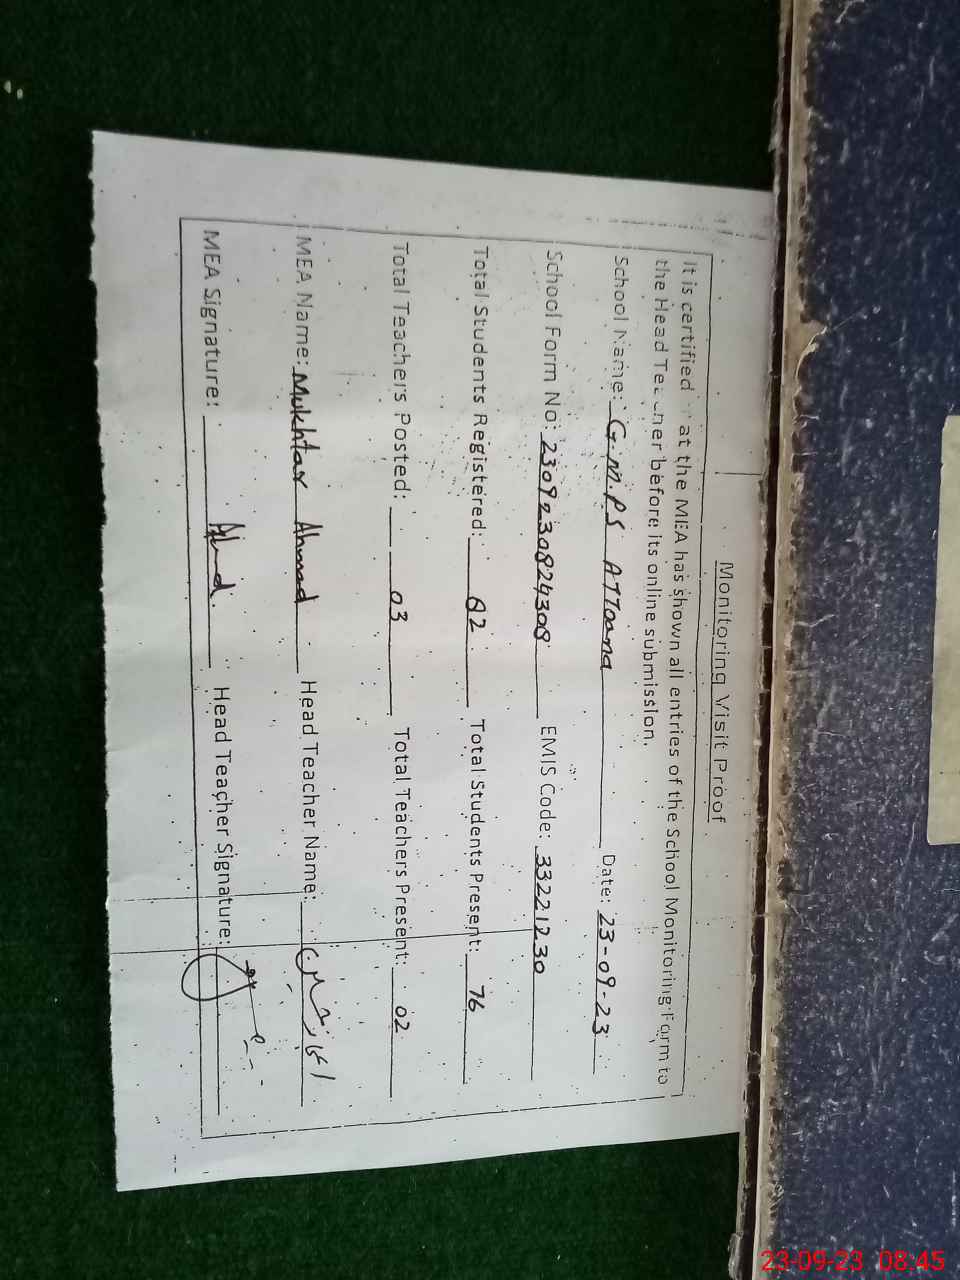 Monitoring Visit Proof
It is certified at the MEA has shown all entries of the School Monitoring Form to
the Head Teacher before its online submission.
School Name: G.M.PS ATToana Date: 23-09-23
School Form No: 2309230824308 EMIS Code: 33221230
Total Students Registered: 82 Total Students Present: 76
Total Teachers Posted: 03 Total Teachers Present: 02
MEA Name: Mukhtar Ahmad Head Teacher Name:
MEA Signature: Head Teacher Signature:
23-09-23 08:45